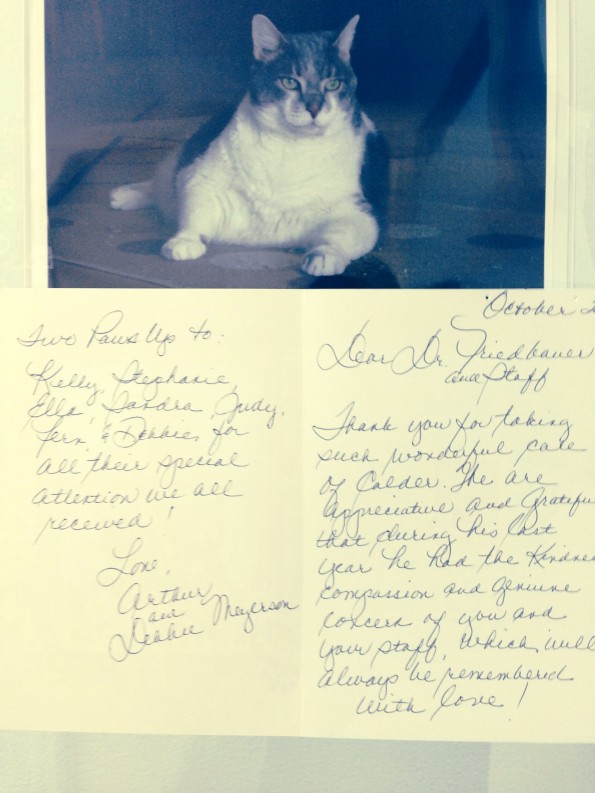 Two Paws Up to:
Kelly, Stephanie,
Ella, Sandra, Judy,
Fern & Debbie, for
all their special
attention we all
received!
Love,
Arthur
and
Debbie Meyerson
October 2
Dear Dr. Friedbauer
and Staff
Thank you for taking
such wonderful care
of Calder. We are
appreciative and grateful
that during his last
year he had the kindness
compassion and genuine
concern of you and
your staff, which will
always be remembered
with love!